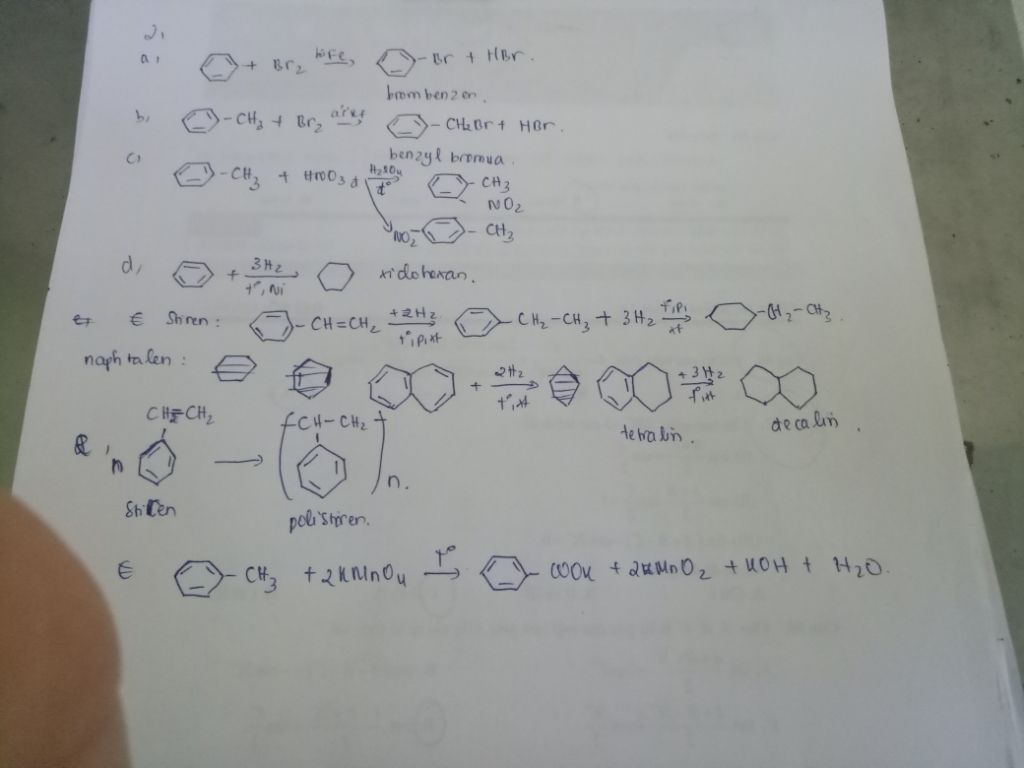 2,
a, + Br2 bột Fe -Br + HBr.
brombenzen.
b, -CH3 + Br2 as -CH2Br + HBr.
benzyl bromua.
c, -CH3 + HNO3 đ H2SO4 t° -CH3 NO2
NO2- -CH3
d, + 3H2 t°, Ni xiclohexan.
€ Stiren: -CH=CH2 +2H2 t°,p,xt -CH2-CH3 + 3H2 t°,p xt -CH2-CH3.
naphtalen: + 2H2 t°,xt + 3H2 t°,xt
tetralin. decalin.
CH=CH2 -CH-CH2-
n n.
Stiren polistiren.
€ -CH3 + 2KMnO4 t° -COOK + 2MnO2 + KOH + H2O.